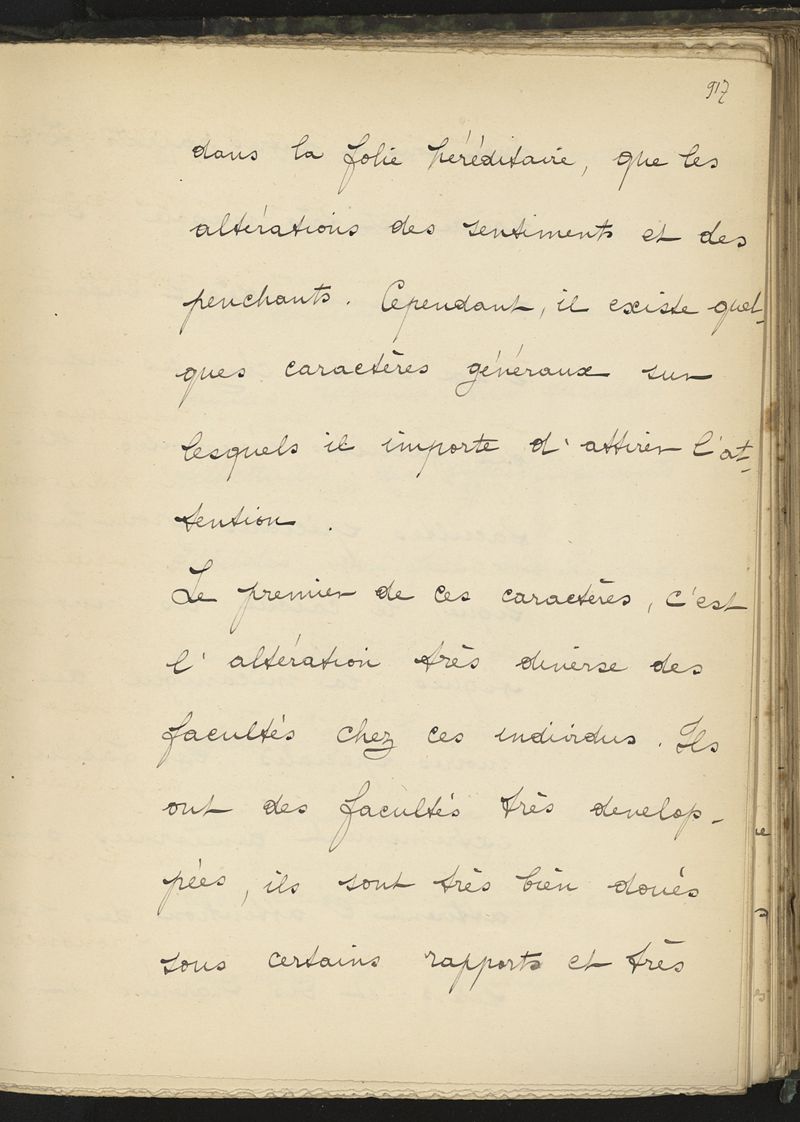 917
dans la folie héréditaire, que les
altérations des sentiments et des
penchants. Cependant, il existe quel-
ques caractères généraux sur
lesquels il importe d'attirer l'at-
tention.
Le premier de ces caractères, c'est
l'altération très diverse des
facultés chez ces individus. Ils
ont des facultés très develop-
pées, ils sont très bien doués
sous certains rapports et très